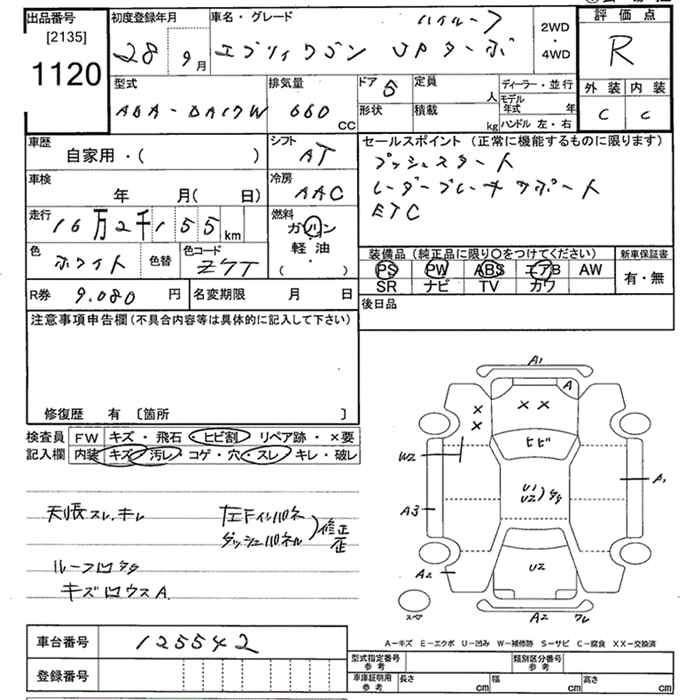 出品番号
[2135]
1120
初度登録年月
28 9月
車名・グレード
ハイルーフ
エブリイワゴン JPターボ
2WD
・
4WD
評価点
R
外装 内装
C C
型式
ABA-DA17W
排気量
660
CC
ドア
5
定員
人
形状
積載
kg
ディーラー・並行
モデル年式 年
ハンドル 左・右
車歴
自家用・( )
シフト
AT
車検
年 月( 日)
冷房
AAC
走行
16万2千155km
燃料
ガソリン
軽・油
( ・ )
色
ホワイト
色替
色コード
Z7T
R券 9.080 円
名変期限 月 日
セールスポイント(正常に機能するものに限ります)
プッシュスタート
レーダーブレーキサポート
ETC
装備品(純正品に限り○をつけてください)
新車保証書
PS PW ABS エアB AW
SR ナビ TV カワ
有・無
後日品
注意事項申告欄(不具合内容等は具体的に記入して下さい)
修復歴 有 [箇所 ]
検査員
記入欄
FW キズ・飛石・ヒビ割・リペア跡・×要
内装 キズ・汚レ・コゲ・穴・スレ・キレ・破レ
天張スレ.キレ
左Fインパネ
ダッシュパネル
修正
歪
キズ凹ウスA.
A1
A
× × × ×
ヒビ
W2
U1
U2
A1
A3
A2
U2
スペア
A2
A-キズ E-エクボ U-凹み W-補修跡 S-サビ C-腐食 XX-交換済
車台番号 125542
登録番号
型式指定番号
参考
類別区分番号
参考
車庫証明用
参考
長さ cm 幅 cm 高さ cm